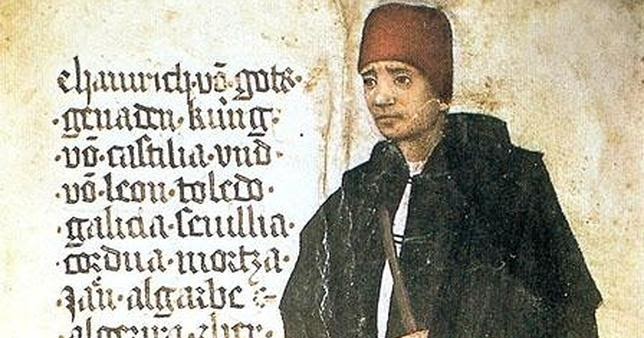 ehainrich·vō·gots·
·genaden·küng·
·vō·castilia·vnd·
·vō·leon·toledo·
·galicia·seuillia·
·cordua·mortza·
·Jaū·algarbe·